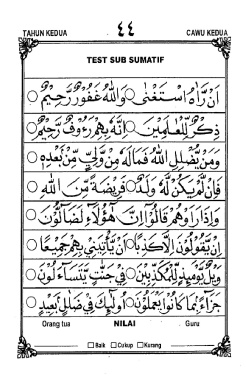 TAHUN KEDUA ٤٤ CAWU KEDUA
TEST SUB SUMATIF
اَنْ رَّاٰهُ اسْتَغْنٰى ○ وَاللّٰهُ غَفُوْرٌ رَّحِيْمٌ ○
ذِكْرٌ لِّلْعٰلَمِيْنَ ○ اِنَّهٗ بِهِمْ رَءُوْفٌ رَّحِيْمٌ ○
وَمَنْ يُّضْلِلِ اللّٰهُ فَمَالَهٗ مِنْ وَّلِيٍّ مِّنْ بَعْدِهٖ ○
فَاِنْ لَّمْ يَكُنْ لَّهٗ وَلَدٌ ○ فَرِيْضَةً مِّنَ اللّٰهِ ○
وَاِذَا رَاَوْهُمْ قَالُوْٓا اِنَّ هٰٓؤُلَآءِ لَضَآلُّوْنَ ○
اِنْ يَّقُوْلُوْنَ اِلَّا كَذِبًا ○ اَنْ يَّأْتِيَنِيْ بِهِمْ جَمِيْعًا ○
وَيْلٌ يَّوْمَئِذٍ لِّلْمُكَذِّبِيْنَ ○ فِيْ جَنّٰتٍ يَتَسَآءَلُوْنَ ○
جَزَآءً بِمَا كَانُوْا يَعْمَلُوْنَ ○ اُولٰٓئِكَ فِيْ ضَلٰلٍ بَعِيْدٍ ○
Orang tua NILAI Guru
Baik Cukup Kurang